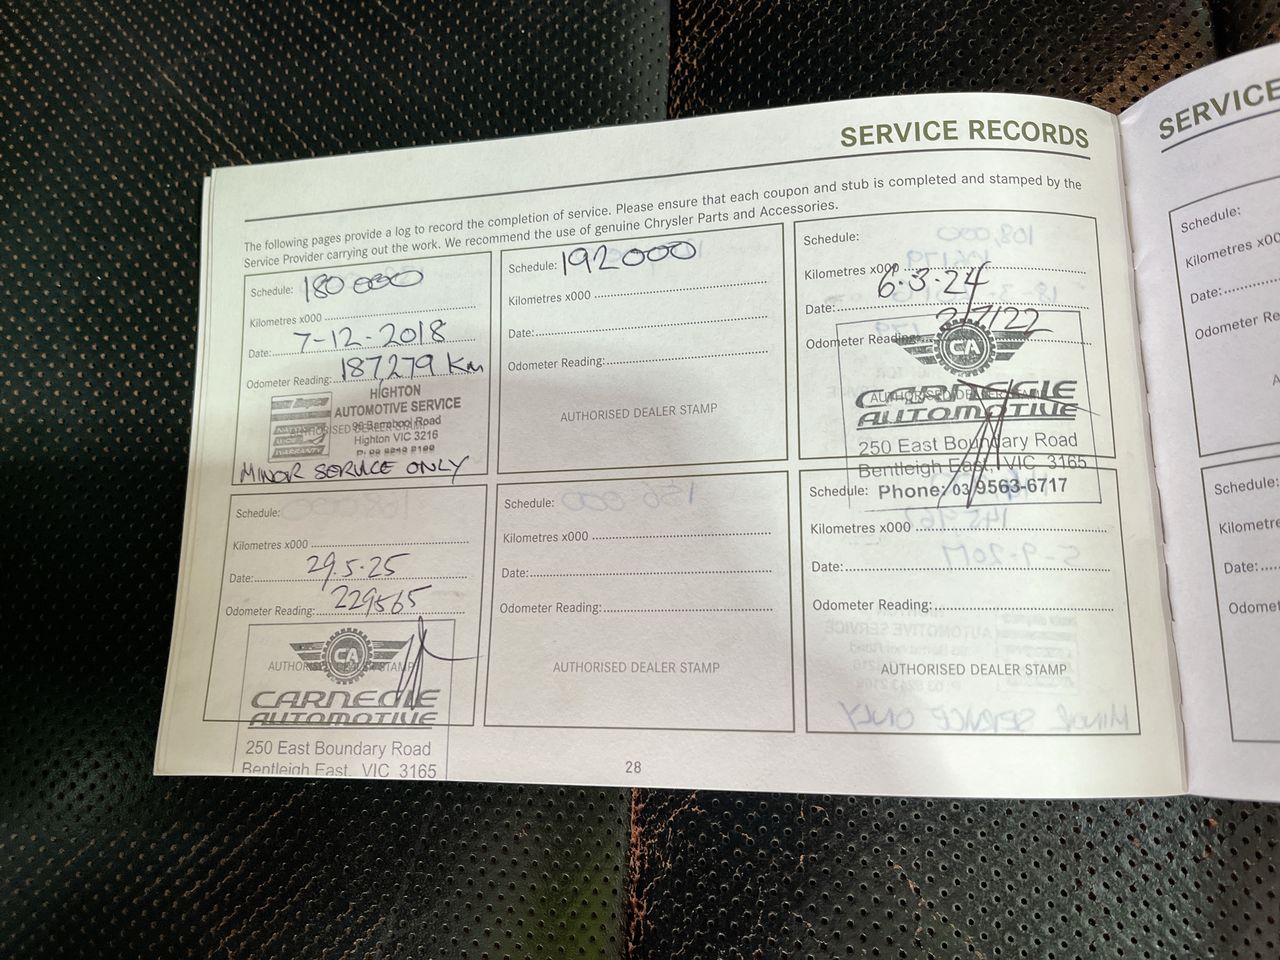 SERVICE RECORDS
The following pages provide a log to record the completion of service. Please ensure that each coupon and stub is completed and stamped by the
Service Provider carrying out the work. We recommend the use of genuine Chrysler Parts and Accessories.
Schedule: 180 000
Kilometres x000
Date: 7-12-2018
Odometer Reading: 187,279 Km
HIGHTON
AUTOMOTIVE SERVICE
Barrabool Road
Highton VIC 3216
AUTHORISED DEALER STAMP
MINOR SERVICE ONLY
Schedule: 192000
Kilometres x000
Date:
Odometer Reading:
AUTHORISED DEALER STAMP
Schedule:
Kilometres x000
6.3.24
Date:
Odometer Reading:
CA
CARNEGIE
AUTHORISED DEALER STAMP
AUTOMOTIVE
250 East Boundary Road
Bentleigh East, VIC 3165
Phone: 03 9563-6717
Schedule:
Kilometres x000
Date: 29.5.25
Odometer Reading: 229565
CA
AUTHORISED DEALER STAMP
CARNEGIE
AUTOMOTIVE
250 East Boundary Road
Bentleigh East, VIC 3165
Schedule:
Kilometres x000
Date:
Odometer Reading:
AUTHORISED DEALER STAMP
Schedule:
Kilometres x000
Date:
Odometer Reading:
AUTHORISED DEALER STAMP
28
SERVICE
Schedule:
Kilometres x00
Date:
Odometer Re
Schedule:
Kilometre
Date:
Odomet